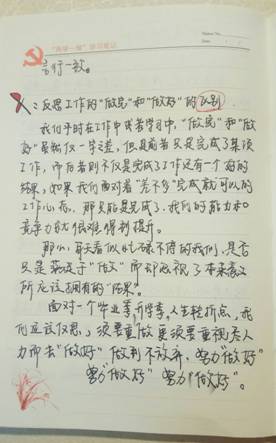 "两学一做"学习笔记
言行一致。
二:反思工作的"做完"和"做好"的区别
我们平时在工作中或者学习中,"做完"和"做
好"虽然仅一字之差,但是前者只是完成了某项
工作,而后者则不仅是完成了工作还有一个好的
结果,如果我们面对着"差不多"完成就可以的
工作心态,那只能是完成了,我们的能力和
竞争力就很难得到提升。
那么,每天看似忙碌不停的我们,是否
只是奔波于"做"而却忽视了本来意义
所应该拥有的"结果"。
面对一个毕业季,升学季,人生转折点,我
们应该反思,须要重做更须要重视,尽人
力而去"做好"做到不放弃,努力"做好"
努力"做好" 努力"做好"。